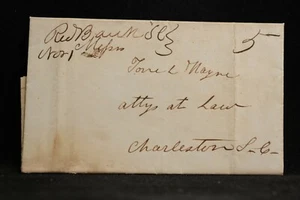 Red Bank SC 5
Nov 1
Torre & Mayne
attys at Law
Charleston S-C-